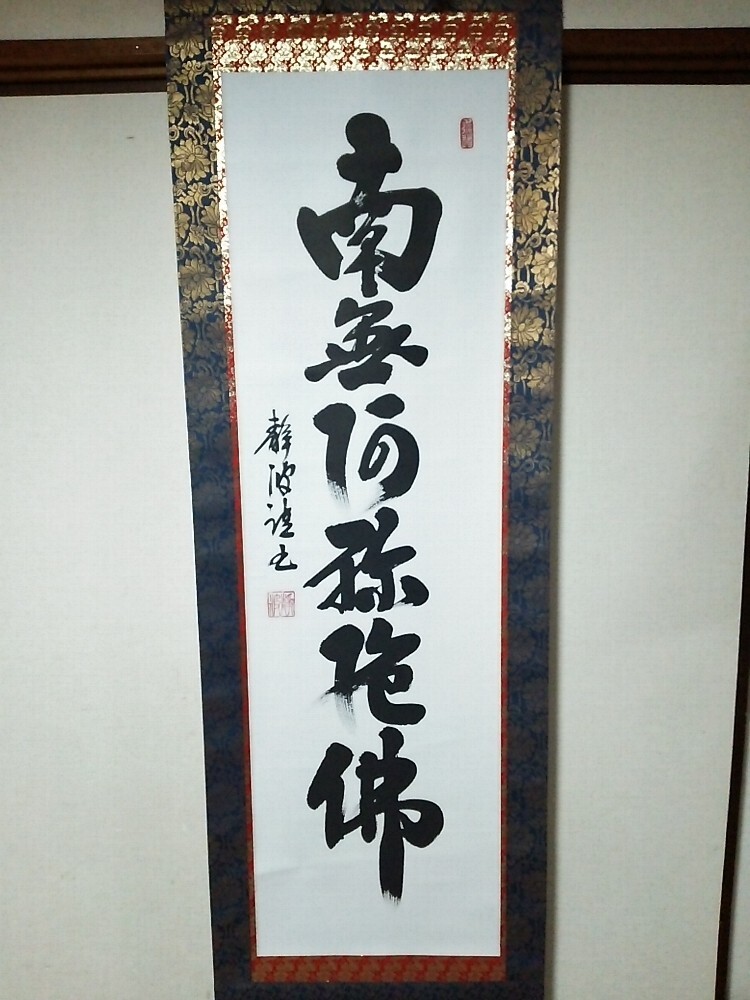 南無阿弥陀佛
靜波謹書